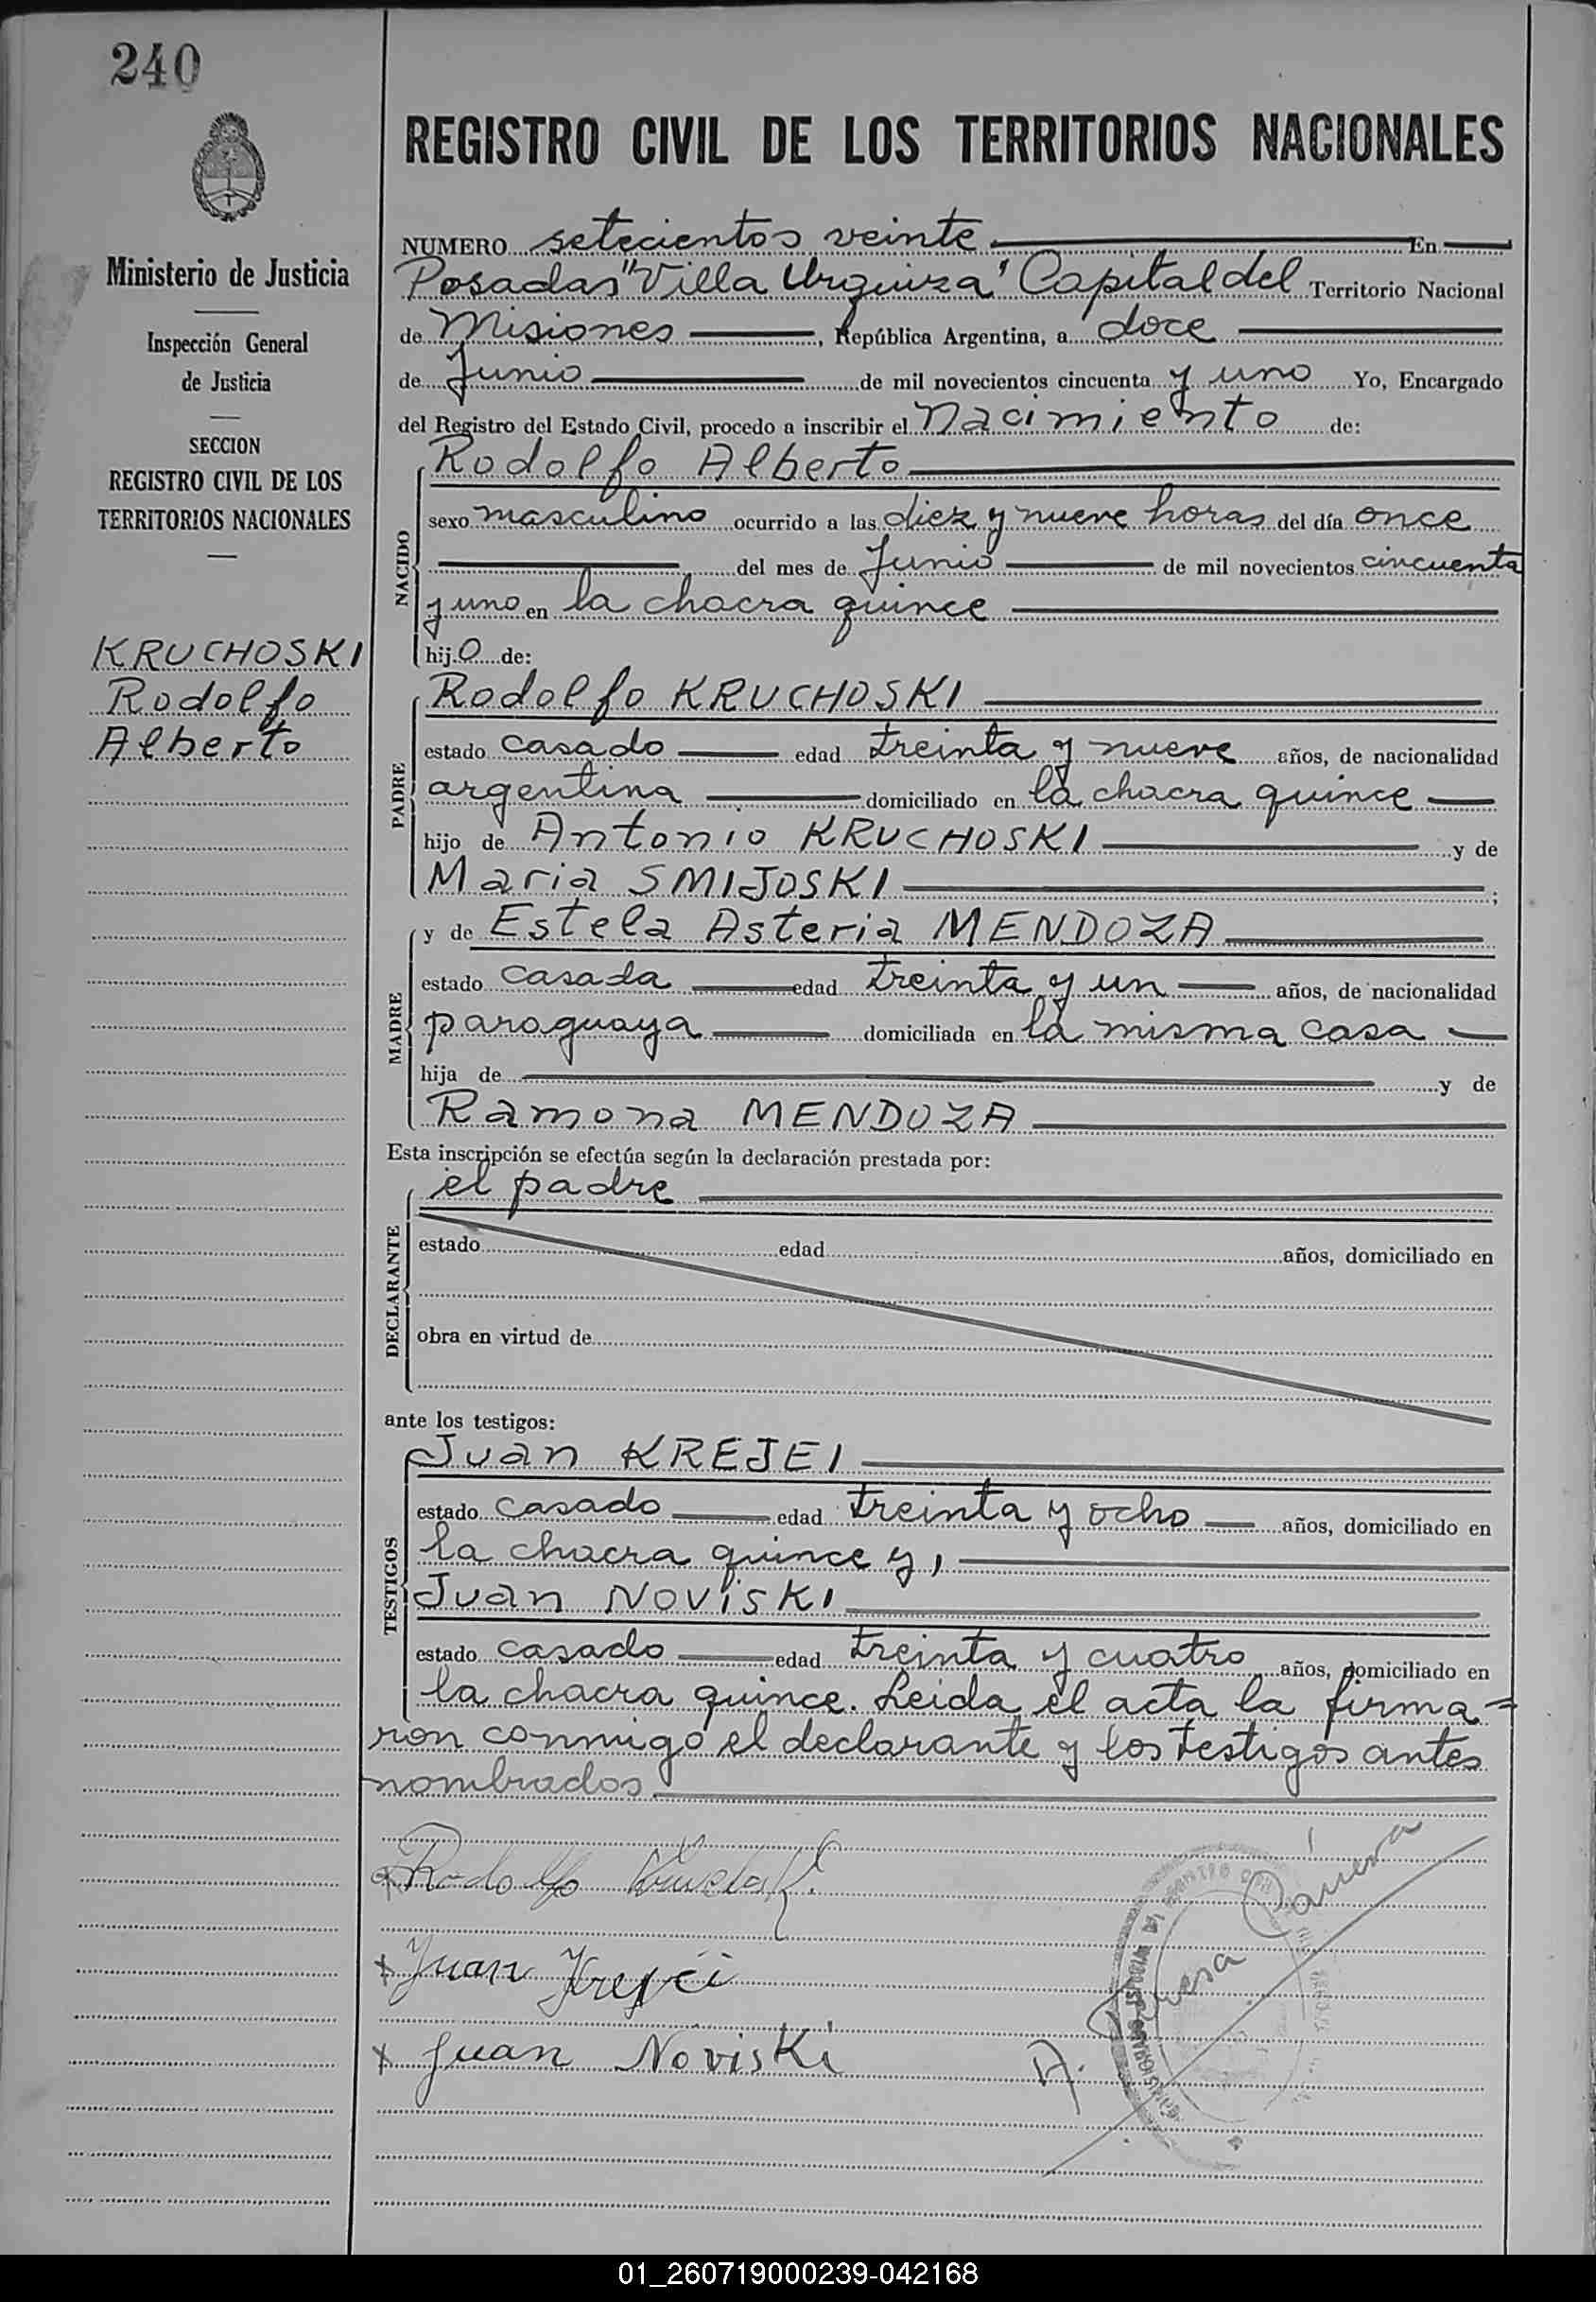 240
REGISTRO CIVIL DE LOS TERRITORIOS NACIONALES
Ministerio de Justicia
Inspección General
de Justicia
SECCION
REGISTRO CIVIL DE LOS
TERRITORIOS NACIONALES
KRUCHOSKI
Rodolfo
Alberto
NUMERO setecientos veinte En
Posadas "Villa Urquiza" Capital del Territorio Nacional
de Misiones, República Argentina, a doce
de Junio de mil novecientos cincuenta y uno Yo, Encargado
del Registro del Estado Civil, procedo a inscribir el Nacimiento de:
NACIDO
Rodolfo Alberto
sexo masculino ocurrido a las diez y nueve horas del día once
del mes de Junio de mil novecientos cincuenta
y uno en la chacra quince
hijo de:
PADRE
Rodolfo KRUCHOSKI
estado casado edad treinta y nueve años, de nacionalidad
argentina domiciliado en la chacra quince
hijo de Antonio KRUCHOSKI y de
Maria SMIJOSKI;
MADRE
y de Estela Asteria MENDOZA
estado casada edad treinta y un años, de nacionalidad
paraguaya domiciliada en la misma casa
hija de y de
Ramona MENDOZA
Esta inscripción se efectúa según la declaración prestada por:
DECLARANTE
el padre
estado edad años, domiciliado en
obra en virtud de
ante los testigos:
TESTIGOS
Juan KREJEI
estado casado edad treinta y ocho años, domiciliado en
la chacra quince y,
Juan NOVISKI
estado casado edad treinta y cuatro años, domiciliado en
la chacra quince. Leida el acta la firma=
ron conmigo el declarante y los testigos antes
nombrados
Rodolfo
Juan Krejci
Juan Noviski
01_260719000239-042168